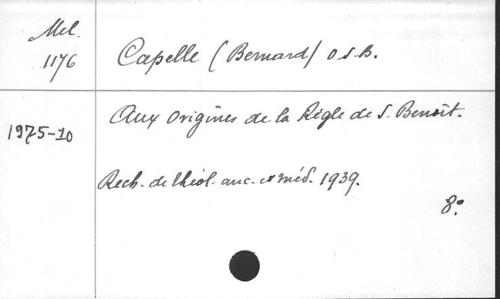 Mel.
1176
Capelle (Bernard) O.S.B.
Aux origines de la Règle de S. Benoît.
1975-10
Rech. de théol. anc. et méd. 1939.
8°